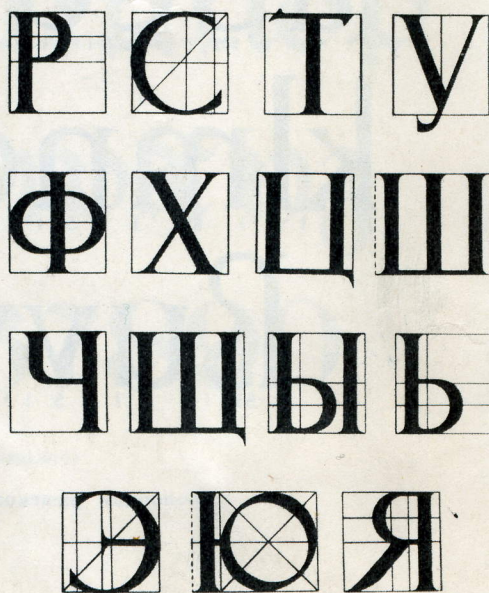 Р С Т У
Ф Х Ц Ш
Ч Щ Ы Ь
Э Ю Я